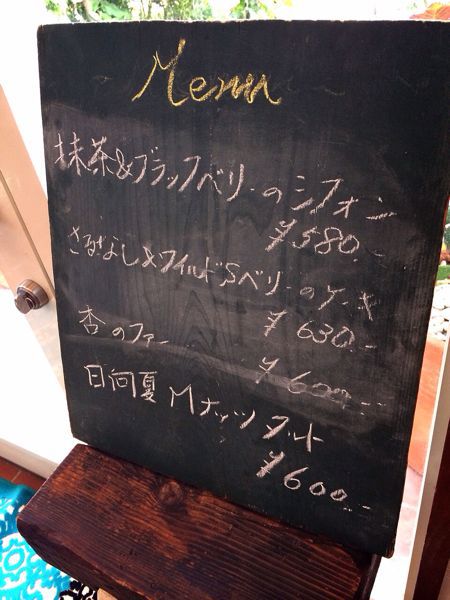 Menu
抹茶&ブラックベリーのシフォン
¥580.-
さるなし&ワイルドSベリーのケーキ
¥630.-
杏のファー
¥600.-
日向夏Mナッツタルト
¥600.-